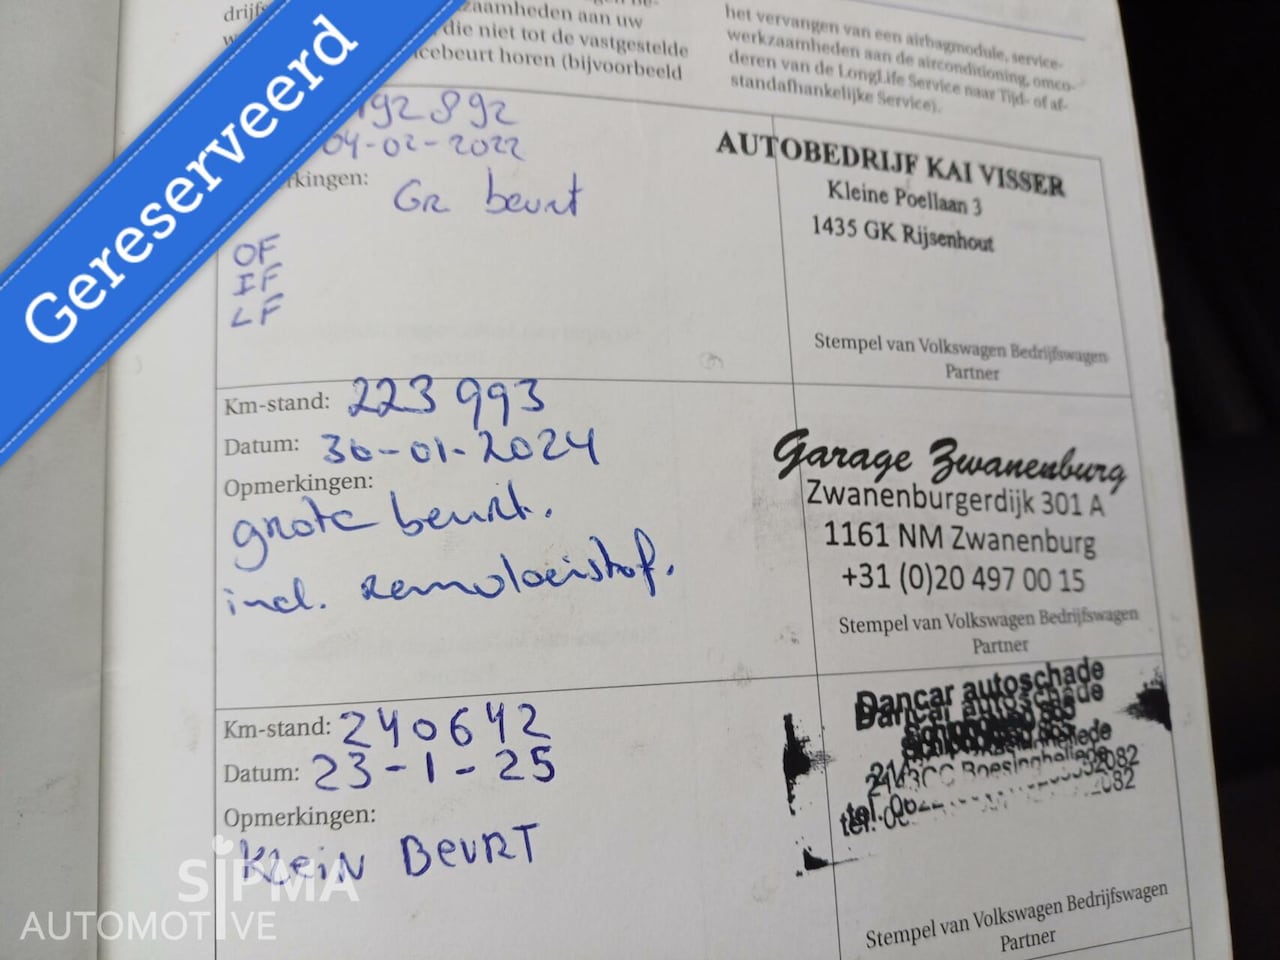 Gereserveerd
zaamheden aan uw
die niet tot de vastgestelde
icebeurt horen (bijvoorbeeld
het vervangen van een airbagmodule, service-
werkzaamheden aan de airconditioning, omco-
deren van de LongLife Service naar Tijd- of af-
standafhankelijke Service).
192892
04-02-2022
rkingen:
GR beurt
OF
IF
LF
AUTOBEDRIJF KAI VISSER
Kleine Poellaan 3
1435 GK Rijsenhout
Stempel van Volkswagen Bedrijfswagen
Partner
Km-stand: 223993
Datum: 30-01-2024
Opmerkingen:
grote beurt.
incl. remvloeistof.
Garage Zwanenburg
Zwanenburgerdijk 301 A
1161 NM Zwanenburg
+31 (0)20 497 00 15
Stempel van Volkswagen Bedrijfswagen
Partner
Km-stand: 240642
Datum: 23-1-25
Opmerkingen:
Klein BEURT
Dancar autoschade
Stempel van Volkswagen Bedrijfswagen
Partner
SIPMA
AUTOMOTIVE